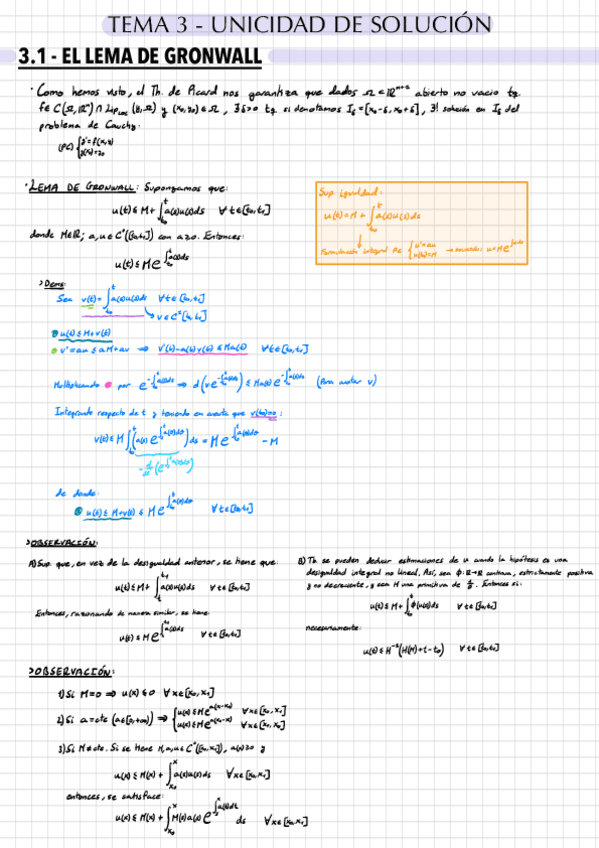 TEMA 3 - UNICIDAD DE SOLUCIÓN
3.1 - EL LEMA DE GRONWALL
· Como hemos visto, el Th. de Picard nos garantiza que dados Ω ⊂ ℝⁿ⁺¹ abierto no vacío tq.
f ∈ C(Ω, ℝⁿ) ∩ Lip_loc(y, Ω) y (x₀, y₀) ∈ Ω, ∃δ>0 tq. si denotamos I_δ = [x₀-δ, x₀+δ], ∃! solución en I_δ del
problema de Cauchy:
(PC) { y' = f(x,y)
y(x₀) = y₀
· LEMA DE GRONWALL: Supongamos que:
u(t) ≤ M + ∫_{t₀}^{t} a(s)u(s)ds ∀t ∈ [t₀,t₁]
donde M∈ℝ; a, u ∈ C⁰([t₀,t₁]) con a≥0. Entonces:
u(t) ≤ M e^{∫_{t₀}^{t} a(s)ds}
Sup. igualdad:
u(t) = M + ∫_{t₀}^{t} a(s)u(s)ds
Formulación integral PC { u' = au
u(t₀) = M → solución: u = M e^{∫a ds}
> Dem:
Sea v(t) = ∫_{t₀}^{t} a(s)u(s)ds ∀t ∈ [t₀,t₁]
↳ v ∈ C¹[t₀,t₁]
u(t) ≤ M + v(t)
v' = au ≤ aM + av ⇒ v'(t) - a(t)v(t) ≤ Ma(t) ∀t ∈ [t₀,t₁]
Multiplicando por e^{-∫a(s)ds} ⇒ d(v e^{-∫a(s)ds}) ≤ Ma(t) e^{-∫a(s)ds} (Para acotar v)
Integrando respecto de t y tomando en cuenta que v(t₀)=0:
v(t) ≤ M ∫_{t₀}^{t} (a(s) e^{∫_{s}^{t} a(σ)dσ}) ds = M e^{∫_{t₀}^{t} a(σ)dσ} - M
-d/ds (e^{∫_{s}^{t} a(σ)dσ})
de donde:
u(t) ≤ M + v(t) ≤ M e^{∫_{t₀}^{t} a(σ)dσ} ∀t ∈ [t₀,t₁]
> OBSERVACIÓN:
A) Sup. que, en vez de la desigualdad anterior, se tiene que:
u(t) ≤ M + ∫_{t}^{t₀} a(s)u(s)ds ∀t ∈ [t₁,t₀]
Entonces, razonando de manera similar, se tiene:
u(t) ≤ M e^{∫_{t}^{t₀} a(s)ds} ∀t ∈ [t₁,t₀]
B) Tb. se pueden deducir estimaciones de u cuando la hipótesis es una
desigualdad integral no lineal. Así, sea φ: ℝ→ℝ continua, estrictamente positiva
y no decreciente, y sea H una primitiva de 1/φ. Entonces si:
u(t) ≤ M + ∫_{t₀}^{t} φ(u(s))ds ∀t ∈ [t₀,t₁]
necesariamente:
u(t) ≤ H⁻¹(H(M) + t - t₀) ∀t ∈ [t₀,t₁]
> OBSERVACIÓN:
1) Si M=0 ⇒ u(x) ≤ 0 ∀x ∈ [x₀,x₁]
2) Si a = cte (a ∈ [0,+∞)) ⇒ { u(x) ≤ M e^{a(x-x₀)} ∀x ∈ [x₀,x₁]
u(x) ≤ M e^{a(x₀-x)} ∀x ∈ [x₁,x₀]
3) Si M ≠ cte. Si se tiene M, a, u ∈ C⁰([x₀,x₁]), a(x) ≥ 0 y
u(x) ≤ M(x) + ∫_{x₀}^{x} a(s)u(s)ds ∀x ∈ [x₀,x₁]
entonces, se satisface:
u(x) ≤ M(x) + ∫_{x₀}^{x} M(s)a(s) e^{∫_{s}^{x} a(t)dt} ds ∀x ∈ [x₀,x₁]